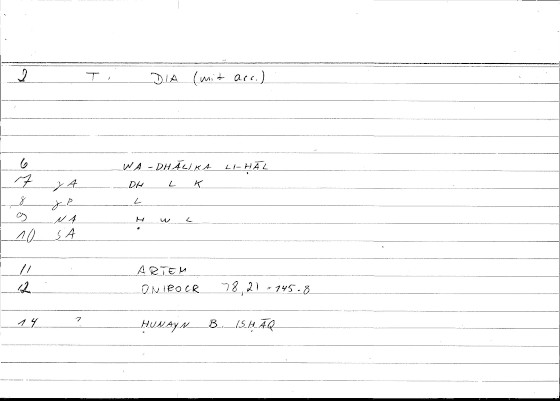 2 T. DIA (mit acc.)
6 WA-DHĀLIKA LI-ḤĀL
7 γA DH L K
8 γP L
9 NA Ḥ W L
10 SA
11 ARTEM
12 ONIROCR 78,21 - 145.8
14 ? ḤUNAYN B. ISḤĀQ